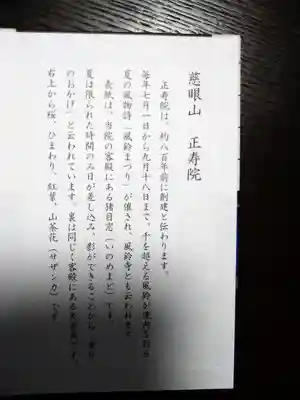 慈眼山　正寿院
正寿院は、約八百年前に創建と伝わります。
毎年七月一日から九月十八日まで、千を超える風鈴が境内を彩る
夏の風物詩「風鈴まつり」が催され、風鈴寺とも云われます
表紙は、当院の客殿にある猪目窓（いのめまど）です。
夏は限られた時間のみ日が差し込み、影ができることから
のおかげ」と云われています。裏は同じく客殿にある天井画です。
右上から桜、ひまわり、紅葉、山茶花（サザンカ）です